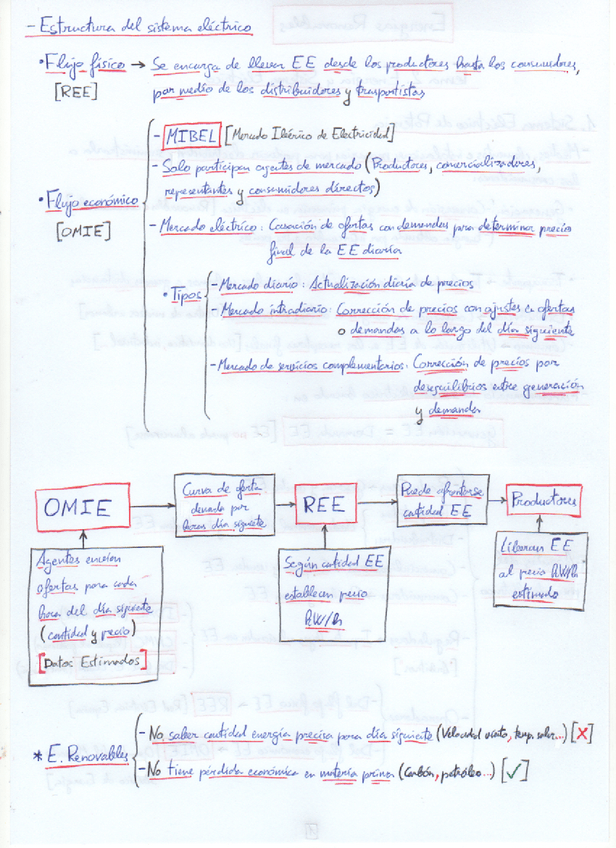 - Estructura del sistema eléctrico
• Flujo físico → Se encarga de llevar EE desde los productores hasta los consumidores,
[REE] por medio de los distribuidores y trasportistas
- MIBEL [Mercado Ibérico de Electricidad]
- Solo participan agentes de mercado (Productores, comercializadores,
representantes y consumidores directos)
• Flujo económico
[OMIE]
- Mercado eléctrico: Casación de ofertas con demandas para determinar precio
final de la EE diaria
• Tipos
- Mercado diario: Actualización diaria de precios
- Mercado intradiario: Corrección de precios con ajustes en ofertas
o demandas a lo largo del día siguiente
- Mercado de servicios complementarios: Corrección de precios por
desequilibrios entre generación
y demanda
OMIE
Curva de oferta
demanda por
horas día siguiente
REE
Puede afrontarse
cantidad EE
Productores
Agentes envían
ofertas para cada
hora del día siguiente
(cantidad y precio)
[Datos Estimados]
Según cantidad EE
establecen precio
kW/h
Liberan EE
al precio kW/h
estimado
* E. Renovables
- No saber cantidad energía precisa para día siguiente (Velocidad viento, temp. solar...) [X]
- No tiene pérdida económica en materia prima (Carbón, petróleo...) [✓]